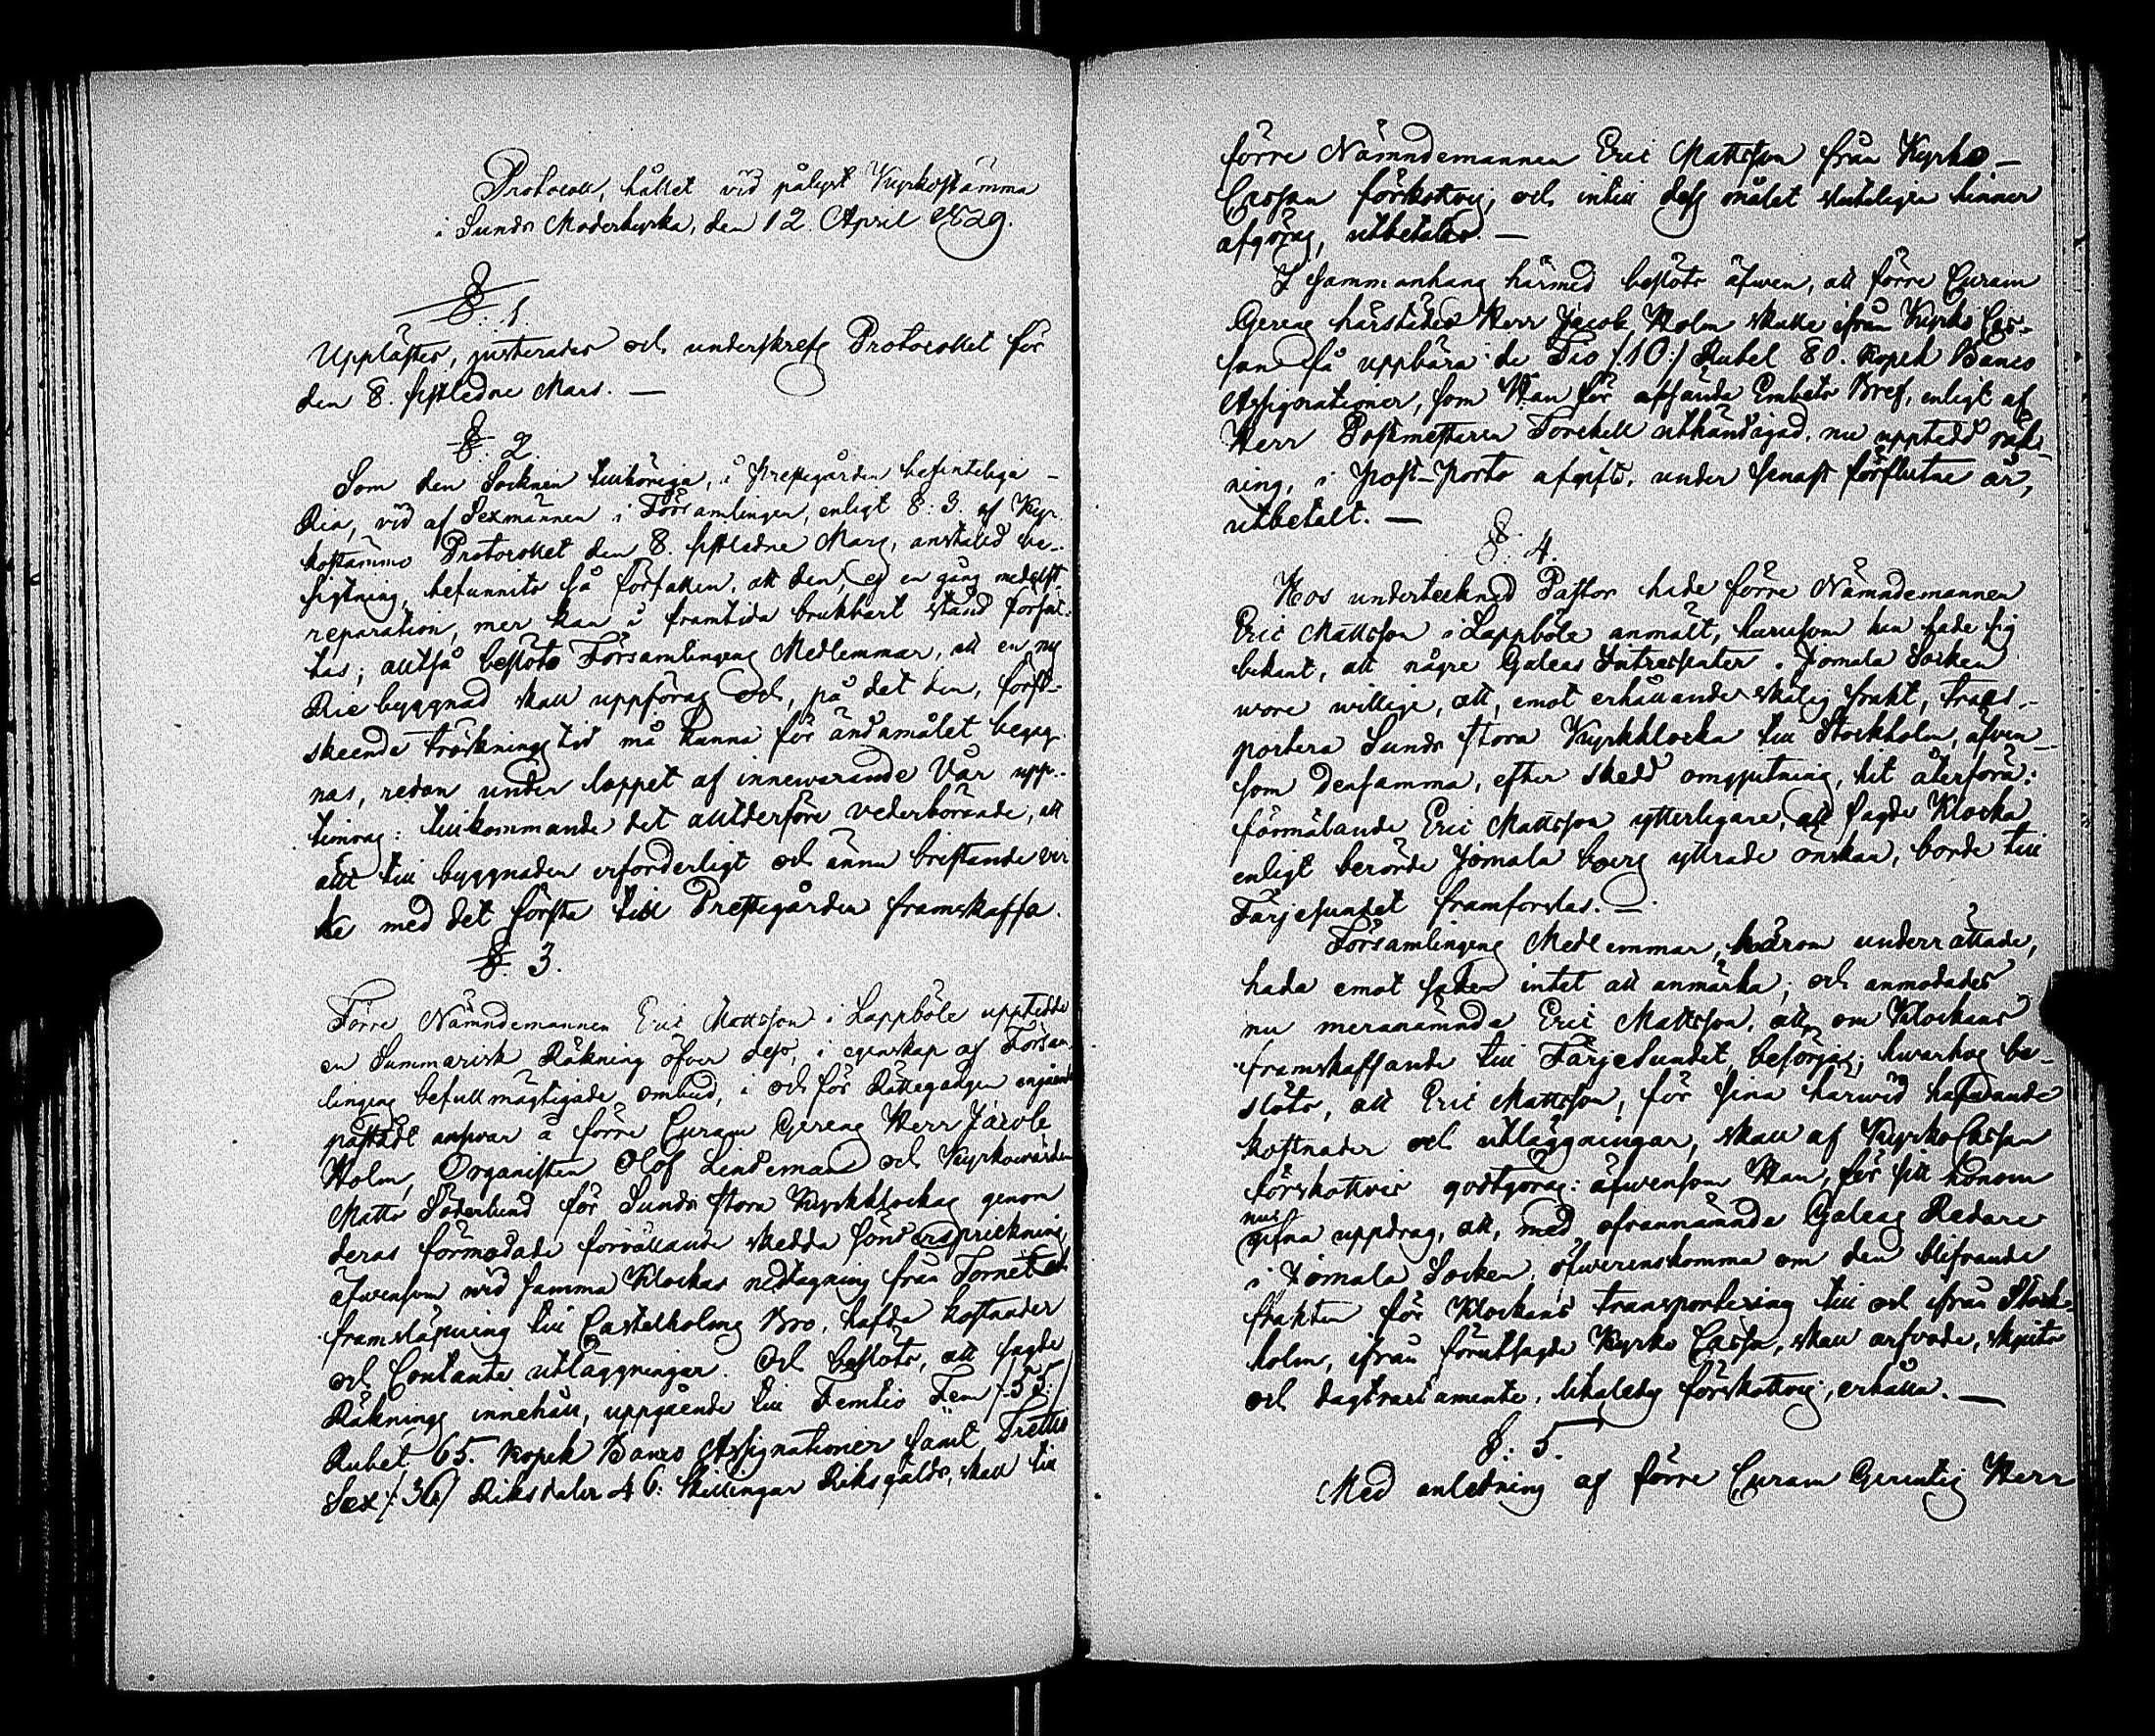 Protocoll, hållet vid pålyst Kyrkostämma
i Sunds Moderkyrka, den 12 April 1829.
§. 1.
Upplästes, justerades och underskrefs Protocollet för
den 8. sistledne Mars. —
§. 2.
Som den Socknen tillhöriga, i Prestegården befinteliga
Ria, vid af Sexmännen i Församlingen, enligt §: 3. af Kyr-
kostämmo Protocollet den 8. sistledne Mars, anstäld be-
sigtning, befunnits så förfallen, att den, ej en gång medelst
reparation, mer kan i framtida brukbart stånd försät-
tas; alltså beslöts Församlingens Medlemmar, att en ny
Rie byggnad skall uppföras och, på det den, först-
skeende tröskningstid må kunna för ändamålet begag-
nas, redan under loppet af innewarande Vår upp-
timras: tillkommande det alltderföre vederbörande, att
allt till byggnaden erforderligt och ännu bristande vir
ke med det första till Prestegården framskaffa.
§. 3.
Förre Nämndemannen Eric Mattsson i Lappböle uppteddde
en Summarisk Räkning öfver dess, i egenskap af Försam-
lingens befullmägtigade ombud, i och för Rättegången angående
påstådt answar å förre Curam Gerens Herr Jacob
Holm, Organisten Olof Lindeman och Kyrkowärden
Matts Söderlund för Sunds stora Kyrkklockas genom
deras förmodade förvållande skedda sönderspricknings,
äfvensom wid samma Klockas nedtagning från Tornet och
framsläpning till Castelholms Bro, hafda kostnader
och Contanta utläggningar. Och beslöts, att sagde
Räknings innehåll, uppgående till Femtio Fem /:55:/
Rubel 65. Kopek Banco Assignationer samt Trettio
Sex /:36:/ Riksdaler 46. Skillingar Riksgälds, skall till
förre Nämndemannen Eric Mattsson från Kyrko-
Cassan förskottvis, och intill dess målet sluteligen hinner
afgöras, utbetalas. —
I sammanhang härmed beslöts äfwen, att förre Curam
Gerens härstädes Herr Jacob Holm skulle ifrån Kyrko Cas-
san få uppbära de Tio /:10:/ Rubel 80. Kopek Banco
Assignationer, som Han för afsända Embets Bref, enligt af
Herr Postmästaren Torckell uthändigad, nu uppted räk-
ning, i Post-Porto afgift, under senast förflutne år,
utbetalt. —
§. 4.
Hos undertecknad Pastor hade förre Nämndemannen
Eric Mattsson i Lappböle anmält, hurusom han hade sig
bekant, att någre Galeas Intressenter i Jomala Socken
wore willige, att, emot erhållande skälig frakt, trans-
portera Sunds stora Kyrkklocka till Stockholm, äfven-
som densamma, efter skedd omgjutning, hit återföra:
förmälande Eric Mattsson ytterligare, att sagde Klocka
enligt berörde Jomala boers yttrade önskan, borde till
Färjesundet framforslas. —
Församlingens Medlemmar, härom underrättade,
hade emot saken intet att anmärka; och anmodades
nu meranämnde Eric Mattsson, att om Klockans
framskaffande till Färjesundet, besörja; hwarhos be-
slöts, att Eric Mattsson, för sina härwid hafwande
kostnader och utläggningar, skall af Kyrko Cassan
förskottvis godtgöras: äfwensom Han, för sitt honom
nu
gifna uppdrag, att, med ofvannämnde Galeas Redare
i Jomala Socken, öfwerenskomma om den blifvande
frakten för Klockans transportering till och ifrån Stock-
holm, ifrån förutsagde Kyrko Cassa, skall arfvode, skjuts
och dagtractamente, likaledes förskottvis, erhålla. —
§. 5.
Med anledning af förre Curam Gerentis Herr